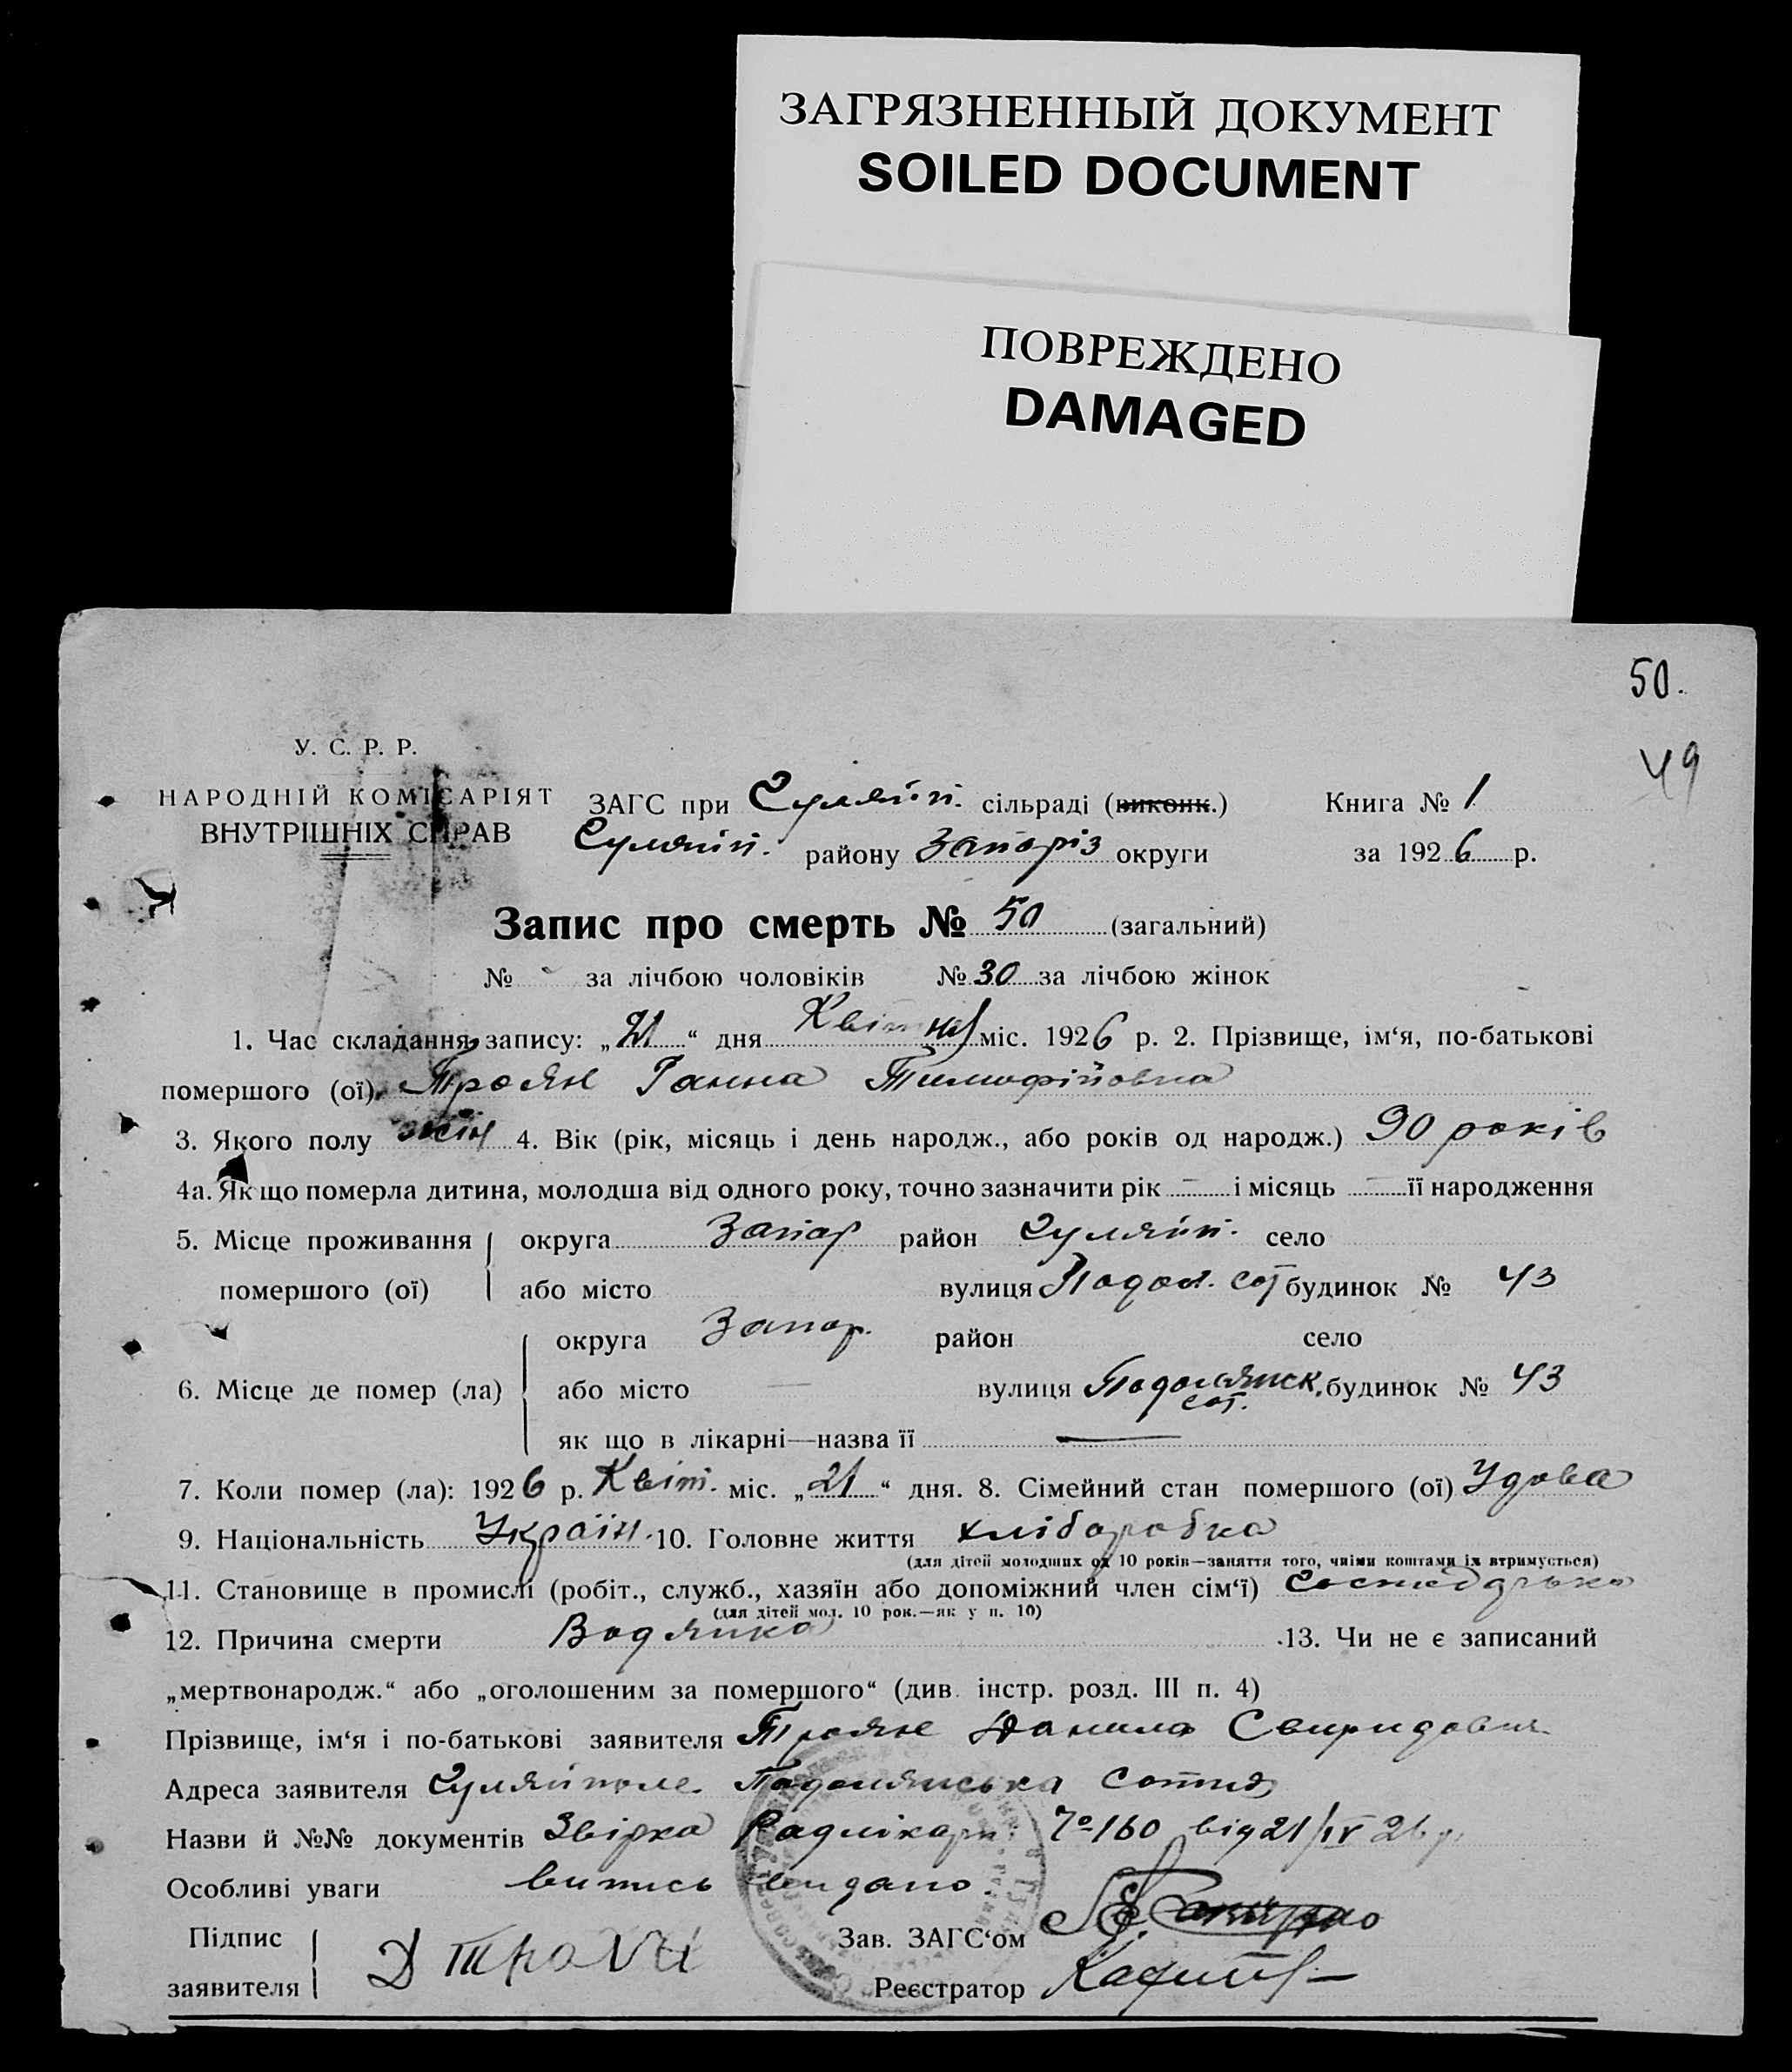 ЗАГРЯЗНЕННЫЙ ДОКУМЕНТ
SOILED DOCUMENT
ПОВРЕЖДЕНО
DAMAGED
50.
49
У. С. Р. Р.
НАРОДНІЙ КОМІСАРІЯТ
ВНУТРІШНІХ СПРАВ
ЗАГС при Гуляйп. сільраді (виконк.)
Гуляйп. району Запоріз округи
Книга № 1
за 1926 р.
Запис про смерть № 50 (загальний)
№ за лічбою чоловіків № 30 за лічбою жінок
1. Час складання запису: „21“ дня Квітня міс. 1926 р. 2. Прізвище, ім‘я, по-батькові
помершого (ої) Троян Ганна Тимофійовна
3. Якого полу жін 4. Вік (рік, місяць і день народж., або років од народж.) 90 років
4а. Як що померла дитина, молодша від одного року, точно зазначити рік – і місяць – її народження
5. Місце проживання помершого (ої) округа Запор район Гуляйп. село
або місто вулиця Подол. сот будинок № 43
6. Місце де помер (ла) округа Запор. район село
або місто — вулиця Подолянск. сот. будинок № 43
як що в лікарні—назва її —
7. Коли помер (ла): 1926 р. Квіт. міс. „21“ дня. 8. Сімейний стан помершого (ої) Удова
9. Національність Україн. 10. Головне життя хліборобка
(для дітей молодших од 10 років—заняття того, чиїми коштами їх втримується)
11. Становище в промислі (робіт., служб., хазяїн або допоміжний член сім‘ї)
(для дітей мол. 10 рок.—як у п. 10)
12. Причина смерти Водянка 13. Чи не є записаний
„мертвонародж.“ або „оголошеним за помершого“ (див. інстр. розд. III п. 4)
Прізвище, ім‘я і по-батькові заявителя Троян Данило Свиридович
Адреса заявителя Гуляйполе Подолянська сотня
Назви й №№ документів Звірка Радлікарні №160 від 21/IV 26 р.
Особливі уваги витись видано.
Підпис заявителя Д Троян
Зав. ЗАГС‘ом
Реєстратор